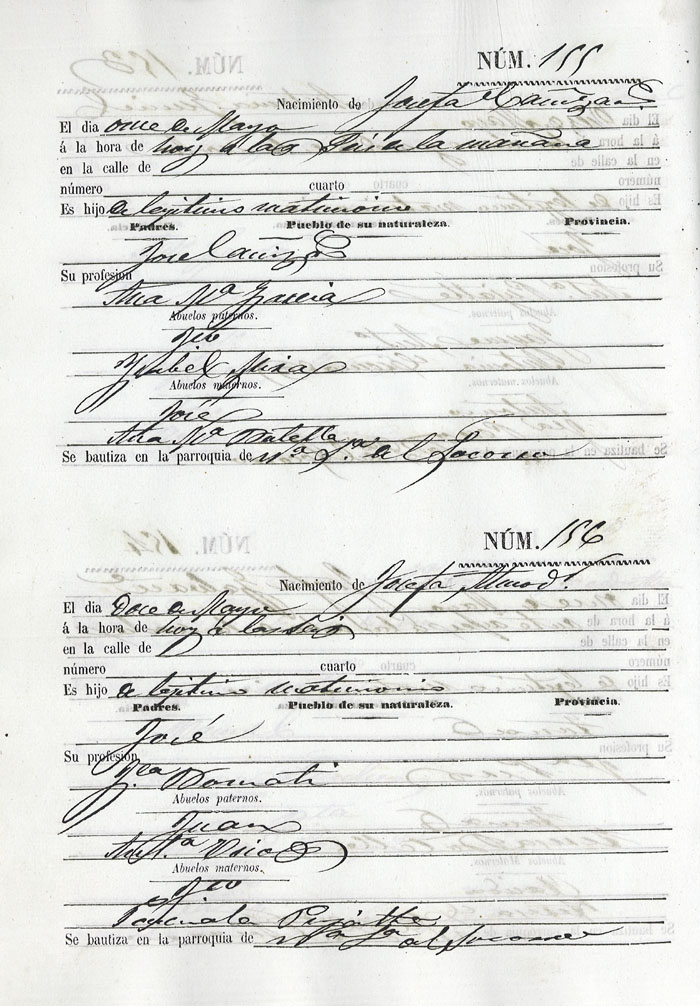 NÚM. 155
Nacimiento de Josefa Cañiza
El dia once de Mayo
á la hora de hoy á las seis de la mañana
en la calle de
número cuarto
Es hijo de legitimo matrimonio
Padres. Pueblo de su naturaleza. Provincia.
Jose Cañiza
Su profesion
Ana Mª Garcia
Abuelos paternos.
Ysabel Mira
Abuelos maternos.
José
Ana Mª
Se bautiza en la parroquia de Nª Sª del Socorro
NÚM. 156
Nacimiento de Josefa
El dia Doce de Mayo
á la hora de hoy á las seis
en la calle de
número cuarto
Es hijo de legitimo matrimonio
Padres. Pueblo de su naturaleza. Provincia.
José
Su profesion
Fca
Abuelos paternos.
Juan
Abuelos maternos.
Pascuala
Se bautiza en la parroquia de Nª Sª del Socorro